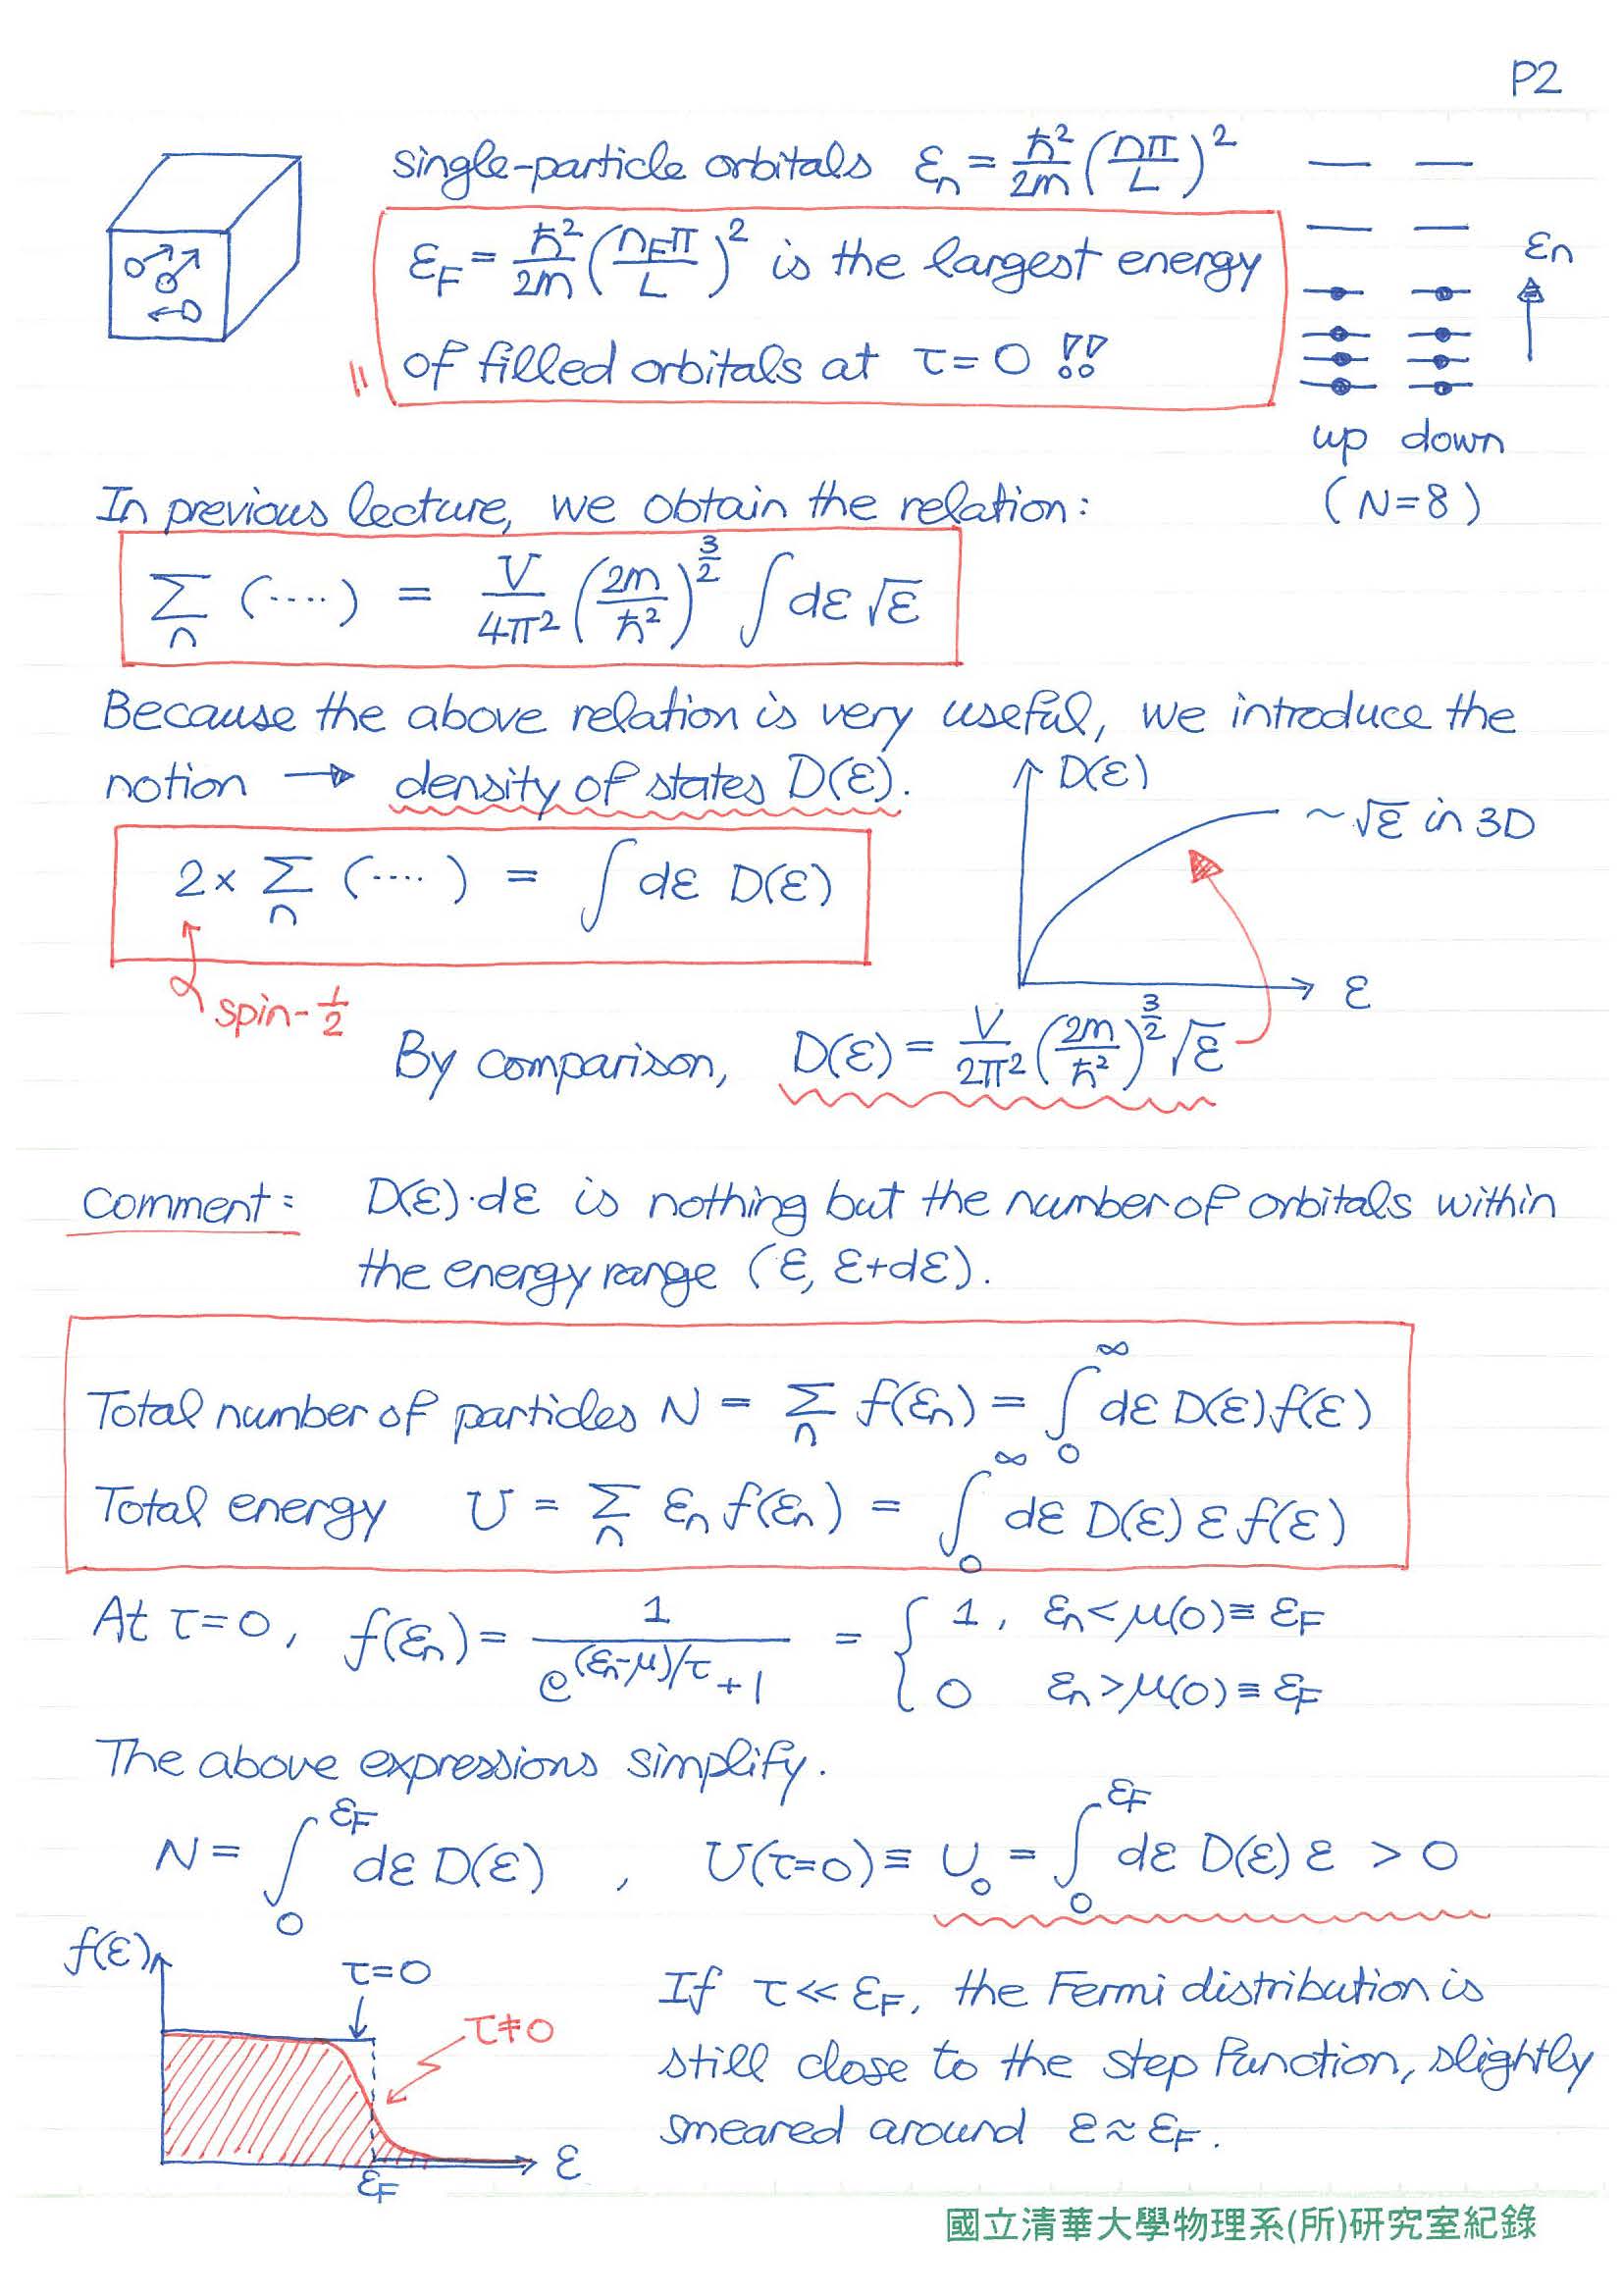 P2
single-particle orbitals εn = ℏ²/2m (nπ/L)²
εF = ℏ²/2m (nFπ/L)² is the largest energy
of filled orbitals at τ=0 !!
εn
up down
(N=8)
In previous lecture, we obtain the relation:
∑n (····) = V/4π² (2m/ℏ²)^3/2 ∫dε √ε
Because the above relation is very useful, we introduce the
notion → density of states D(ε).
D(ε)
~√ε in 3D
2× ∑n (····) = ∫dε D(ε)
ε
spin-1/2
By comparison, D(ε) = V/2π² (2m/ℏ²)^3/2 √ε
Comment: D(ε)·dε is nothing but the number of orbitals within
the energy range (ε, ε+dε).
Total number of particles N = ∑n f(εn) = ∫₀^∞ dε D(ε) f(ε)
Total energy U = ∑n εn f(εn) = ∫₀^∞ dε D(ε) ε f(ε)
At τ=0, f(εn) = 1/(e^(εn-μ)/τ +1) = { 1, εn<μ(0)≡εF
0 εn>μ(0)≡εF
The above expressions simplify.
N = ∫₀^εF dε D(ε) , U(τ=0) ≡ U₀ = ∫₀^εF dε D(ε) ε > 0
f(ε)
τ=0
τ≠0
ε
εF
If τ≪εF, the Fermi distribution is
still close to the step function, slightly
smeared around ε≈εF.
國立清華大學物理系(所)研究室紀錄